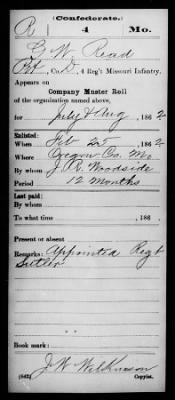 (Confederate.)
R 4 Mo.
G W Read
Pvt, Co. D, 4 Reg't Missouri Infantry.
Appears on
Company Muster Roll
of the organization named above,
for July & Aug, 1862
Enlisted:
When Feb 25, 1862
Where Oregon Co. Mo
By whom J. R. Woodside
Period 12 Months
Last paid:
By whom
To what time , 186 .
Present or absent
Remarks: Appointed Regt
Sutler
Book mark:
(642) J. W. Wilkinson
Copyist.